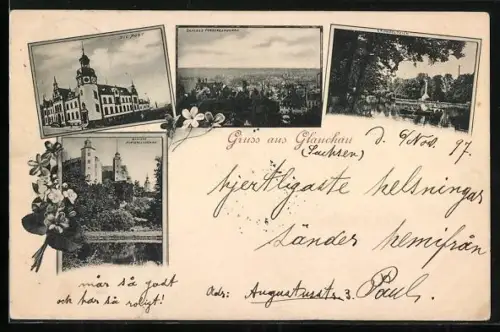 KGL. POST
SCHLOSS FORDERGLAUCHAU
Gruss aus Glauchau
(Sachsen)
d. 6/Nov. 97.
hjertligaste helsningar
sänder hemifrån
Paul.
Adr: Augustusstr. 3.
mår så godt
och har så roligt!